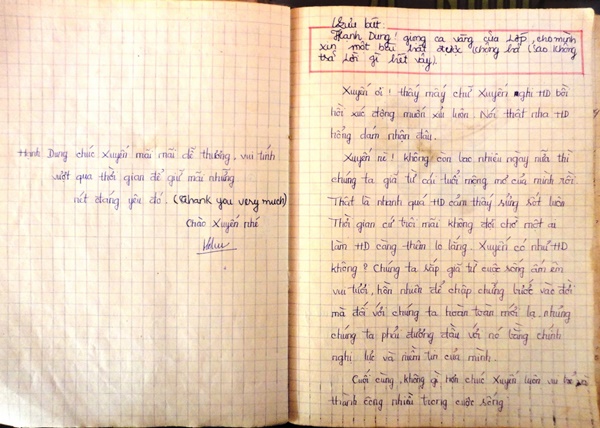 Hạnh Dung chúc Xuyến mãi mãi dễ thương, vui tính
vượt qua thời gian để giữ mãi những
nét đáng yêu đó. (Thank you very much)
Chào Xuyến nhé
Lưu bút.
Hạnh Dung! giọng ca vàng của lớp, cho mình
xin một bài hát được không hả (sao không
trả lời gì hết vậy)
Xuyến ơi! thấy mấy chữ Xuyến ghi HD bồi
hồi xúc động muốn xỉu luôn. Nói thật nha HD
hổng dám nhận đâu.
Xuyến nè! không còn bao nhiêu ngày nữa thì
chúng ta giã từ cái tuổi mộng mơ của mình rồi.
Thật là nhanh quá HD cảm thấy sửng sốt luôn
Thời gian cứ trôi mãi không đợi chờ một ai
làm HD càng thân lo lắng. Xuyến có như HD
không? Chúng ta sắp giã từ cuộc sống ấm êm
vui tươi, hồn nhiên để chập chững bước vào đời
mà đối với chúng ta hoàn toàn mới lạ nhưng
chúng ta phải đương đầu với nó bằng chính
nghị lực và niềm tin của mình.
Cuối cùng, không gì hơn chúc Xuyến luôn vui
thành công nhiều trong cuộc sống